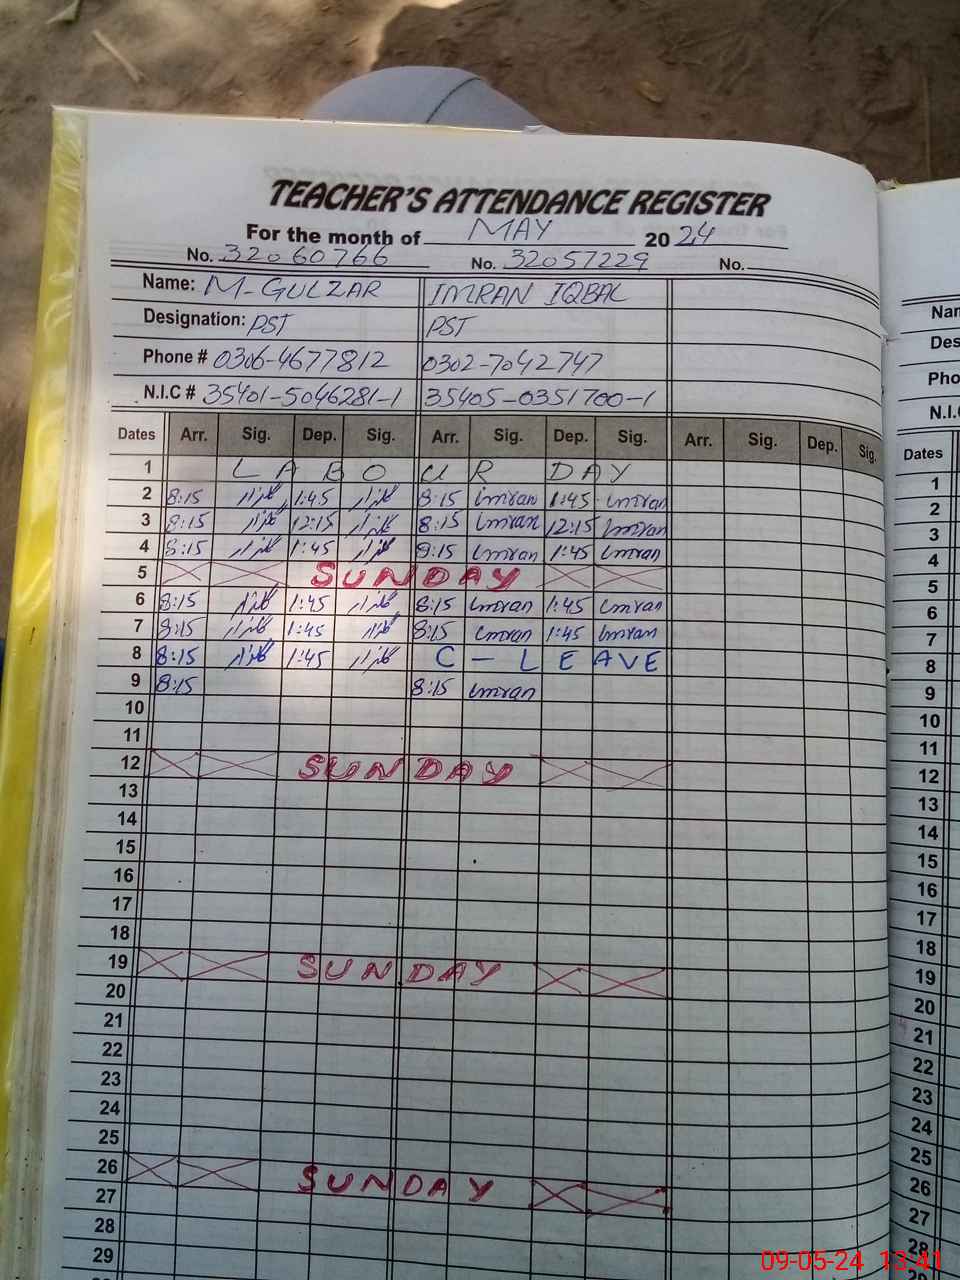 TEACHER'S ATTENDANCE REGISTER
For the month of MAY 2024
No. 32060766 No. 32057229 No.
Name: M-GULZAR IMRAN IQBAL
Designation: PST PST
Phone # 0306-4677812 0302-7042747
N.I.C # 35401-5046281-1 35405-0351700-1
Dates Arr. Sig. Dep. Sig. Arr. Sig. Dep. Sig. Arr. Sig. Dep. Sig.
1 LABOUR DAY
2 8:15 گلزار 1:45 گلزار 8:15 imran 1:45 imran
3 8:15 گلزار 12:15 گلزار 8:15 imran 12:15 imran
4 8:15 گلزار 1:45 گلزار 8:15 imran 1:45 imran
5 SUNDAY
6 8:15 گلزار 1:45 گلزار 8:15 imran 1:45 imran
7 8:15 گلزار 1:45 گلزار 8:15 imran 1:45 imran
8 8:15 گلزار 1:45 گلزار C-LEAVE
9 8:15 8:15 imran
10
11
12 SUNDAY
13
14
15
16
17
18
19 SUNDAY
20
21
22
23
24
25
26 SUNDAY
27
28
29
Nam
Des
Pho
N.I.C
Dates
1
2
3
4
5
6
7
8
9
10
11
12
13
14
15
16
17
18
19
20
21
22
23
24
25
26
27
28
09-05-24 13:41